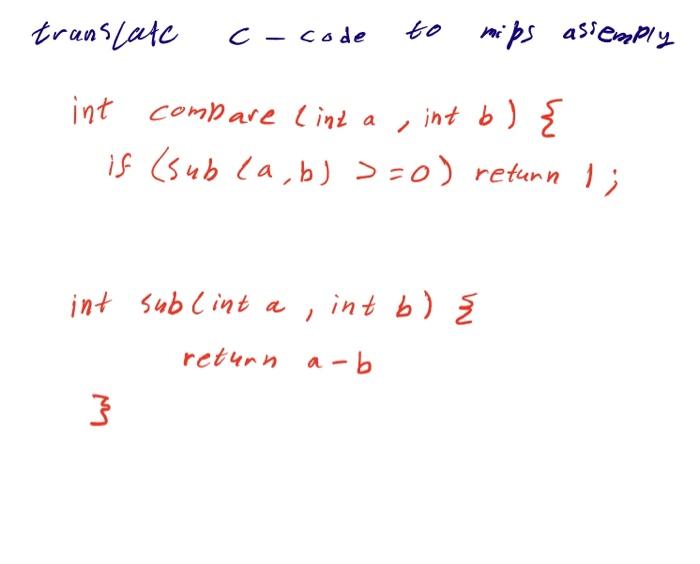 translate c - code to mips assemply
int compare (int a , int b) {
if (sub (a,b) >=0) return 1 ;
int sub(int a , int b) {
return a-b
}